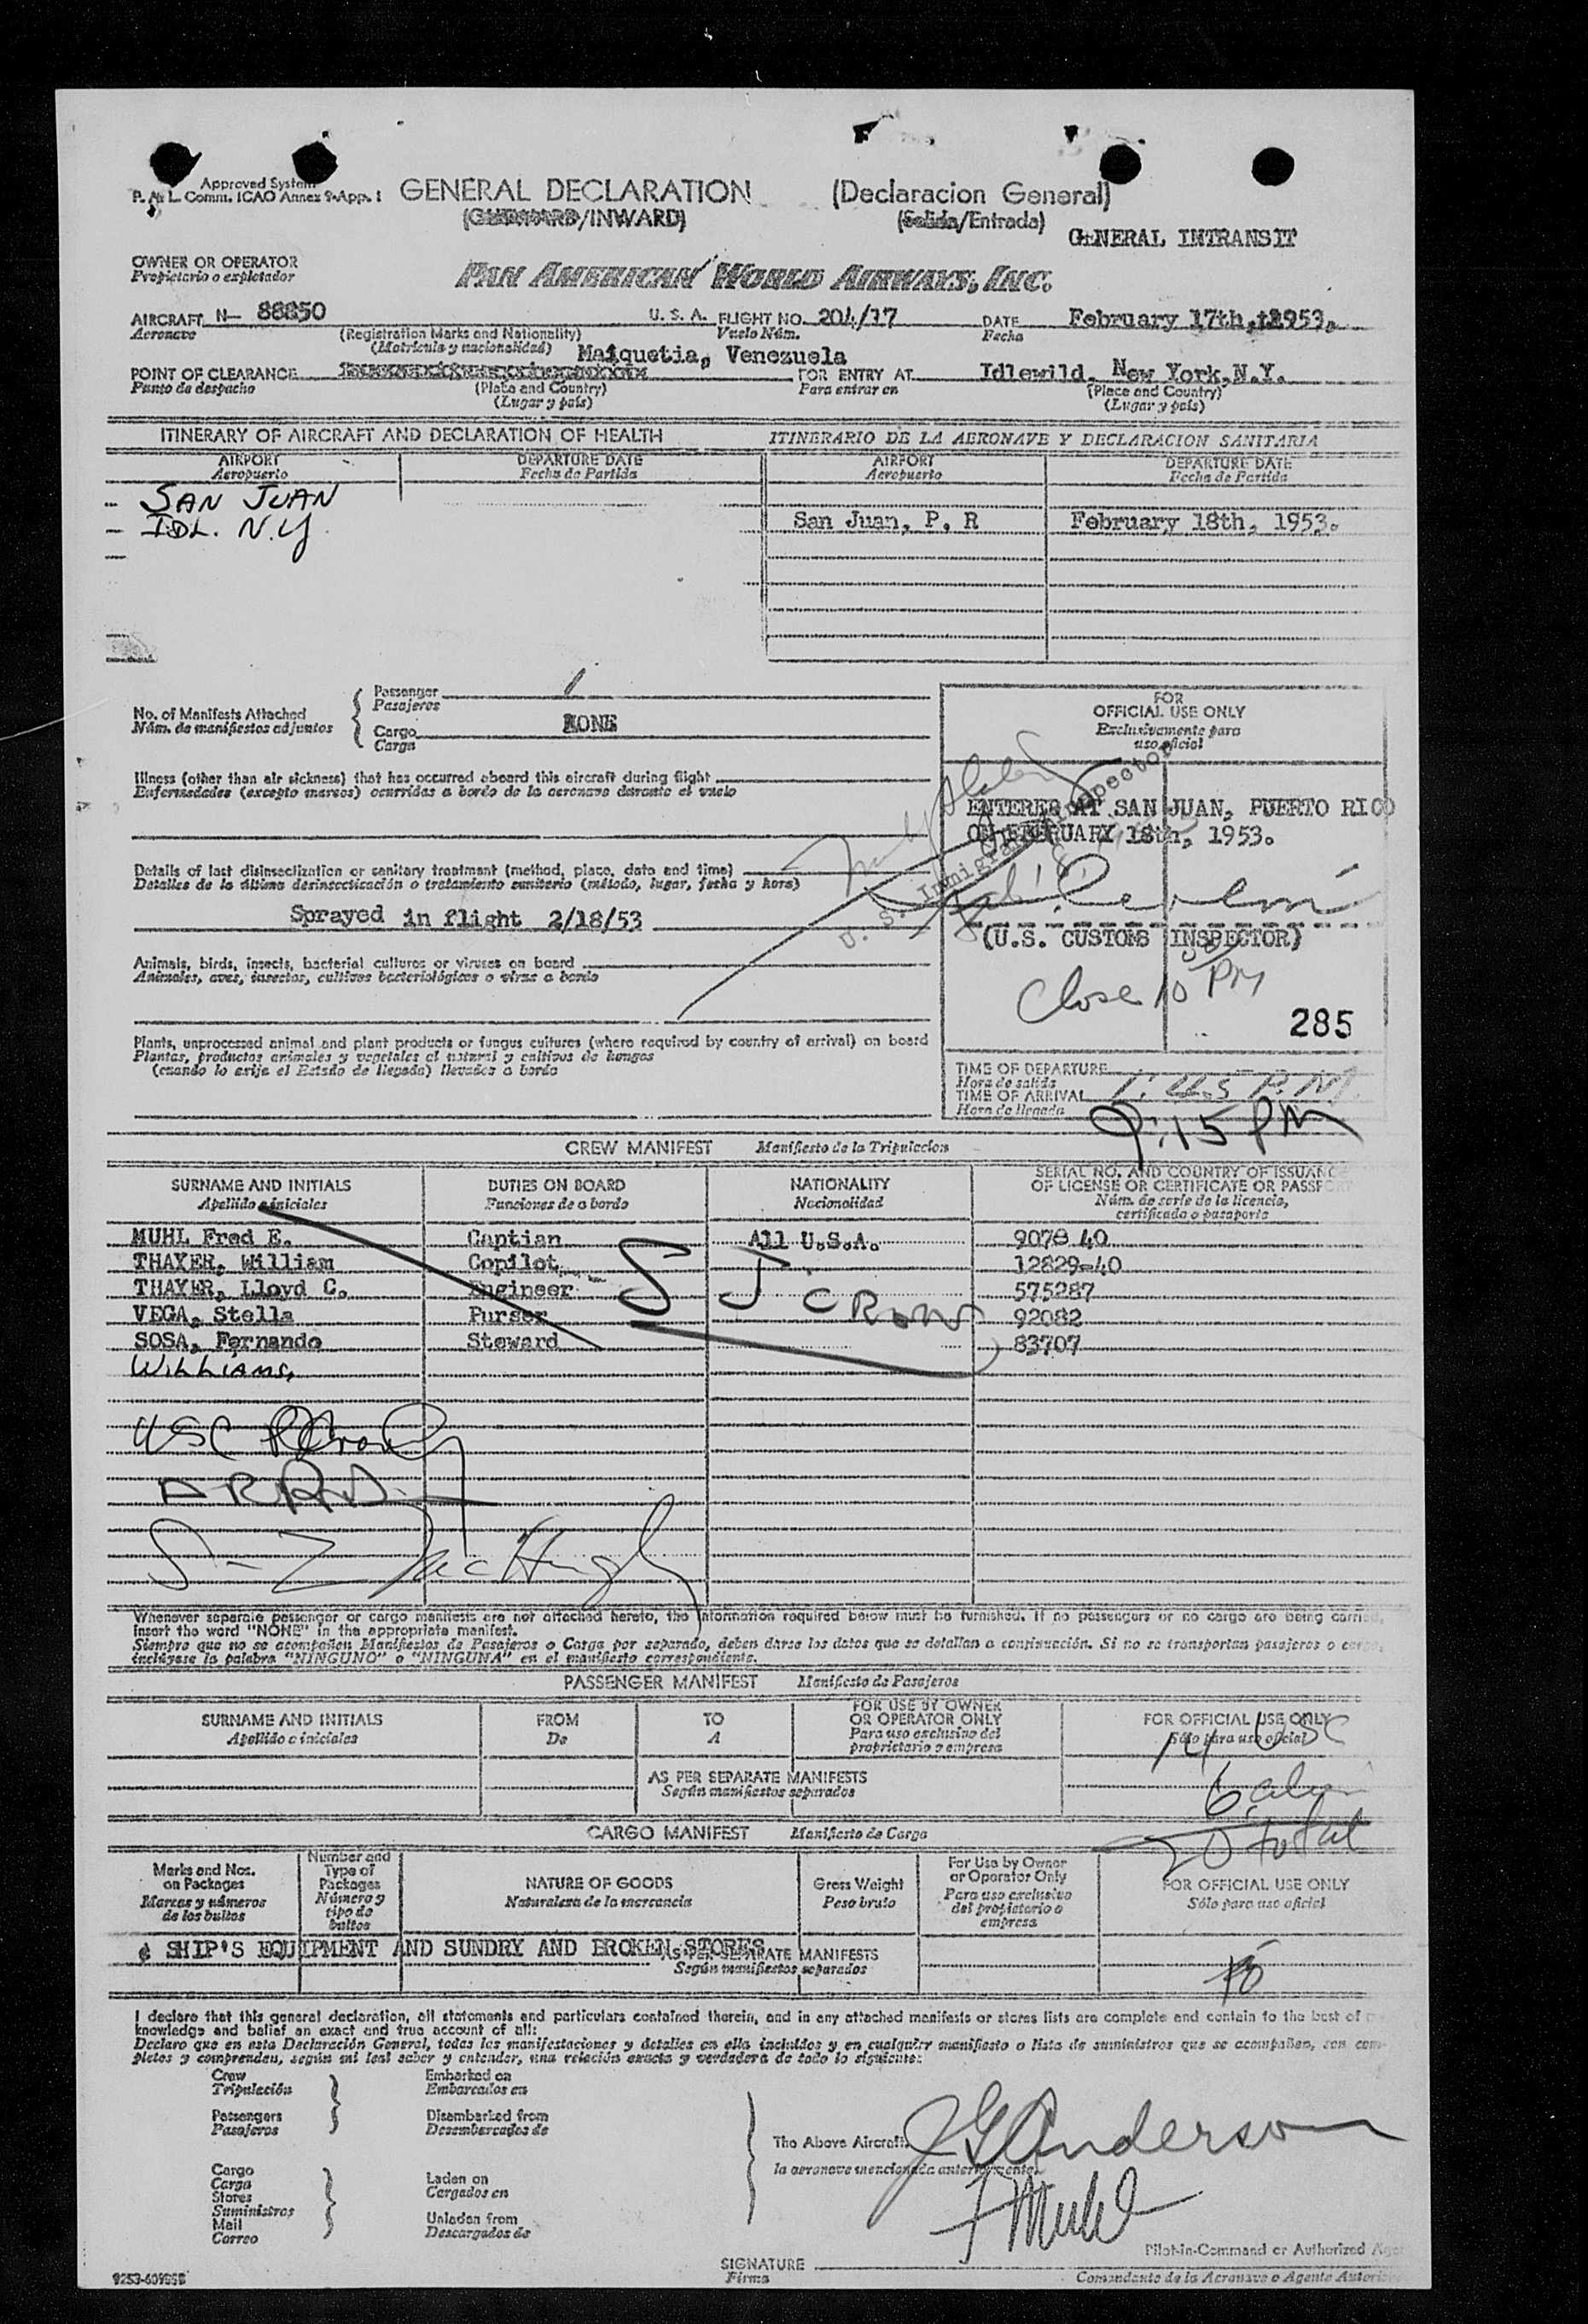 Approved System
P. A. L. Comm. ICAO Annex 9-App. 1
GENERAL DECLARATION (Declaracion General)
(OUTWARD/INWARD) (Salida/Entrada)
GENERAL INTRANSIT
OWNER OR OPERATOR
Propietario o explotador
PAN AMERICAN WORLD AIRWAYS, INC.
AIRCRAFT N- 88850 U. S. A. FLIGHT NO. 204/17 DATE February 17th, 1953.
Aeronave (Registration Marks and Nationality) Vuelo Núm. Fecha
(Matrícula y nacionalidad)
Maiquetia, Venezuela
POINT OF CLEARANCE FOR ENTRY AT Idlewild, New York, N.Y.
Punto de despacho (Place and Country) Para entrar en (Place and Country)
(Lugar y país) (Lugar y país)
ITINERARY OF AIRCRAFT AND DECLARATION OF HEALTH ITINERARIO DE LA AERONAVE Y DECLARACION SANITARIA
AIRPORT DEPARTURE DATE AIRPORT DEPARTURE DATE
Aeropuerto Fecha de Partida Aeropuerto Fecha de Partida
SAN JUAN
IDL. N.Y San Juan, P, R February 18th, 1953.
No. of Manifests Attached
Núm. de manifiestos adjuntos
Passenger 1
Pasajeros
Cargo NONE
Carga
FOR
OFFICIAL USE ONLY
Exclusivamente para
uso oficial
Illness (other than air sickness) that has occurred aboard this aircraft during flight
Enfermedades (excepto mareos) ocurridas a bordo de la aeronave durante el vuelo
ENTERED AT SAN JUAN, PUERTO RICO
ON FEBRUARY 18th, 1953.
U. S. Immigrant Inspector
Details of last disinsectization or sanitary treatment (method, place, date and time)
Detalles de la última desinsectización o tratamiento sanitario (método, lugar, fecha y hora)
Sprayed in flight 2/18/53
(U.S. CUSTOMS INSPECTOR)
Animals, birds, insects, bacterial cultures or viruses on board
Animales, aves, insectos, cultivos bacteriológicos o virus a bordo
Close 10 PM
285
Plants, unprocessed animal and plant products or fungus cultures (where required by country of arrival) on board
Plantas, productos animales y vegetales al natural y cultivos de hongos
(cuando lo exija el Estado de llegada) llevados a bordo
TIME OF DEPARTURE
Hora de salida
TIME OF ARRIVAL
Hora de llegada
9:15 PM
CREW MANIFEST Manifiesto de la Tripulacion
SURNAME AND INITIALS DUTIES ON BOARD NATIONALITY SERIAL NO. AND COUNTRY OF ISSUANCE
OF LICENSE OR CERTIFICATE OR PASSPORT
Apellido e iniciales Funciones de a bordo Nacionalidad Núm. de serie de la licencia,
certificado o pasaporte
MUHL Fred E. Captian All U.S.A. 9078 40
THAYER, William Copilot 12829-40
THAYER, Lloyd C. Engineer 575287
VEGA, Stella Purser 92082
SOSA, Fernando Steward 83707
S J CREW
WILLIAMS,
USC
Whenever separate passenger or cargo manifests are not attached hereto, the information required below must be furnished. If no passengers or no cargo are being carried,
insert the word "NONE" in the appropriate manifest.
Siempre que no se acompañen Manifiestos de Pasajeros o Carga por separado, deben darse los datos que se detallan a continuación. Si no se transportan pasajeros o carga,
inclúyase la palabra "NINGUNO" o "NINGUNA" en el manifiesto correspondiente.
PASSENGER MANIFEST Manifiesto de Pasajeros
SURNAME AND INITIALS FROM TO FOR USE BY OWNER
OR OPERATOR ONLY FOR OFFICIAL USE ONLY
Apellido e iniciales De A Para uso exclusivo del
propietario o empresa Sólo para uso oficial
14 USC
AS PER SEPARATE MANIFESTS
Según manifiestos separados
6 alen
20 total
CARGO MANIFEST Manifiesto de Carga
Marks and Nos.
on Packages
Marcas y números
de los bultos
Number and
Type of
Packages
Número y
tipo de
bultos
NATURE OF GOODS
Naturaleza de la mercancia
Gross Weight
Peso bruto
For Use by Owner
or Operator Only
Para uso exclusivo
del propietario o
empresa
FOR OFFICIAL USE ONLY
Sólo para uso oficial
SHIP'S EQUIPMENT AND SUNDRY AND BROKEN STORES
AS PER SEPARATE MANIFESTS
Según manifiestos separados
I declare that this general declaration, all statements and particulars contained therein, and in any attached manifests or stores lists are complete and contain to the best of
knowledge and belief an exact and true account of all:
Declaro que en esta Declaración General, todas las manifestaciones y detalles en ella incluidos y en cualquier manifiesto o lista de suministros que se acompañan, son com-
pletos y comprenden, según mi leal saber y entender, una relación exacta y verdadera de todo lo siguiente:
Crew Embarked on
Tripulación Embarcados en
Passengers Disembarked from
Pasajeros Desembarcados de
The Above Aircraft.
la aeronave mencionada anteriormente.
J G Anderson
Cargo
Carga
Stores
Suministros
Mail
Correo
Laden on
Cargados en
Unladen from
Descargados de
F Muhl
Pilot-in-Command or Authorized Agent
SIGNATURE
Firma
Comandante de la Aeronave o Agente Autoriz